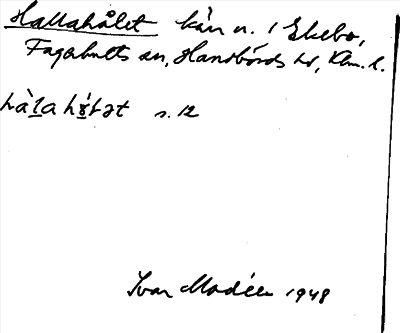 Hallahålet kärr n. i Ekebo,
Fagerhults sn, Handbörds hd, Klm. l.
hàl̠a hó̠ɫət s. 12
Ivar Modéer 1948